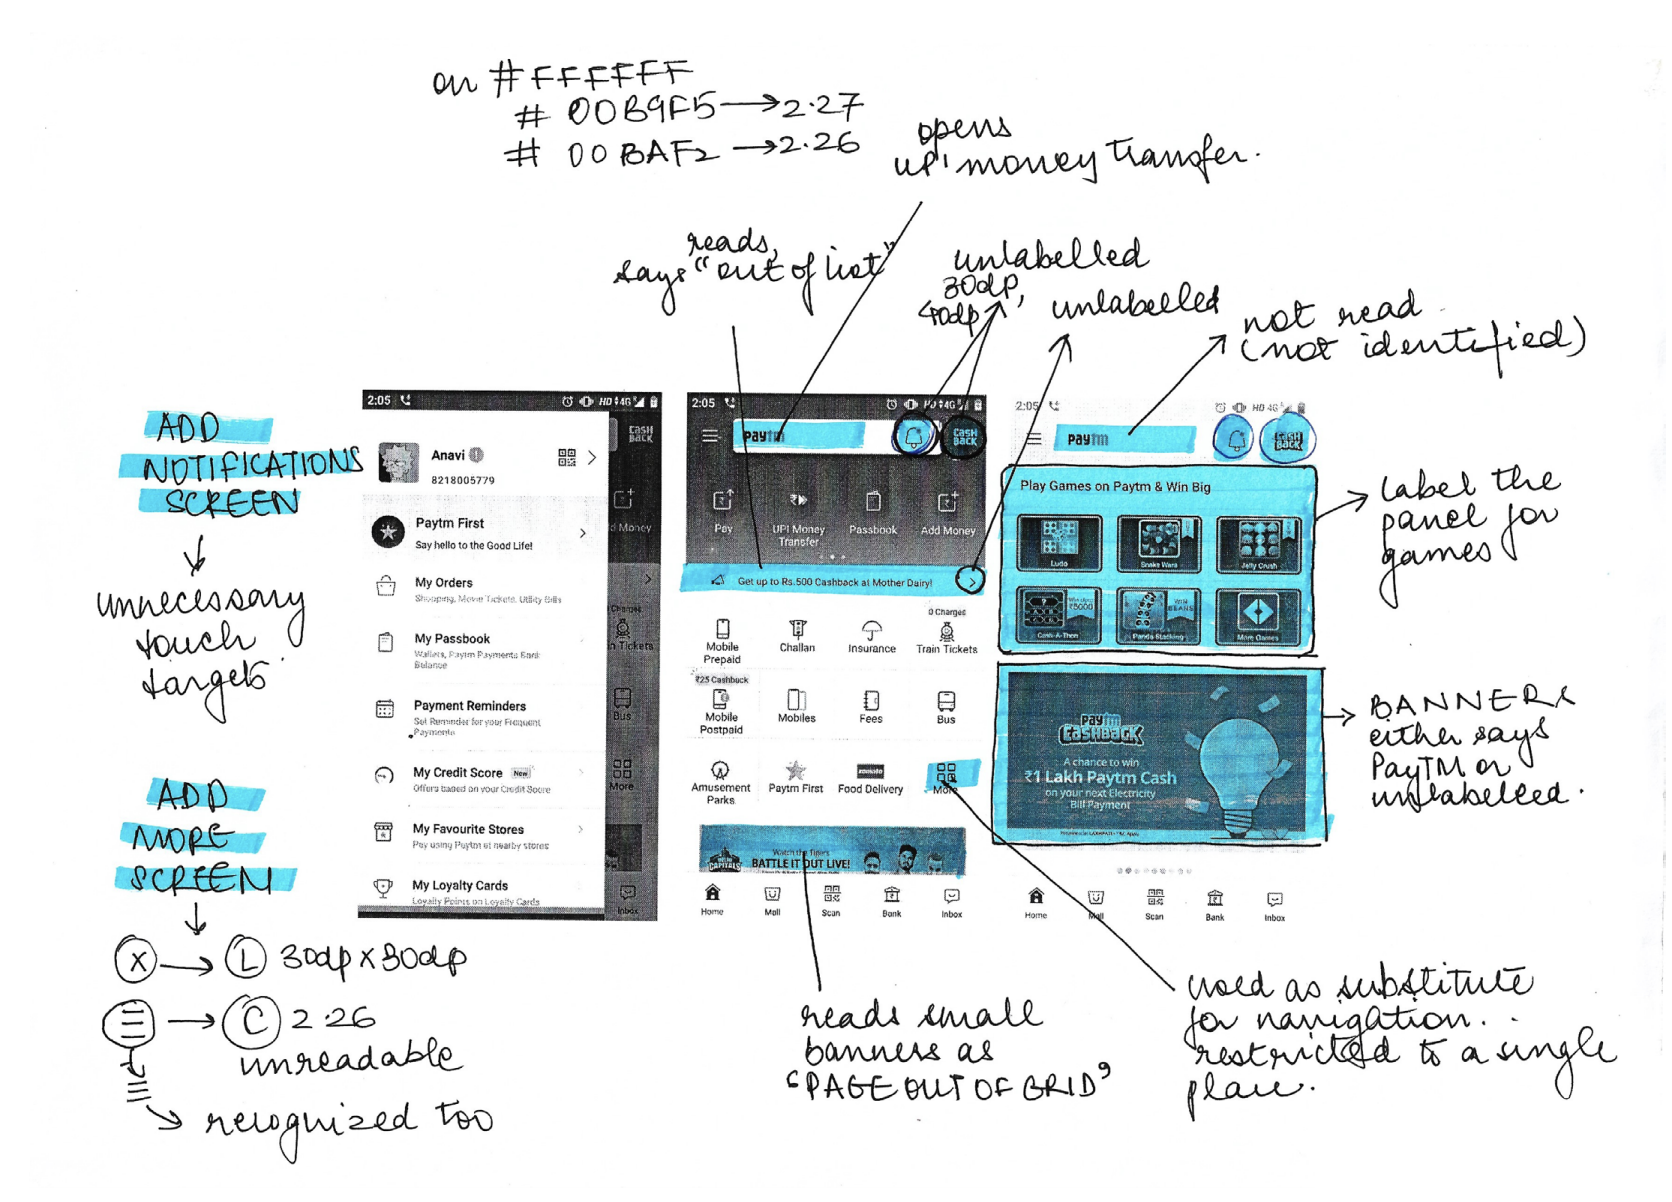 on #FFFFFF
# 00B9F5 → 2.27
# 00BAF2 → 2.26
opens
UPI money transfer.
reads,
says "out of list"
unlabelled
30dp,
40dp
unlabelled
not read
(not identified)
ADD
NOTIFICATIONS
SCREEN
unnecessary
touch
targets
ADD
MORE
SCREEN
X → L 30dp x 30dp
C 2.26
unreadable
recognized too
2:05 HD 4G
CASH BACK
Anavi
8218005779
Paytm First
Say hello to the Good Life!
My Orders
Shopping, Movie Tickets, Utility Bills
My Passbook
Wallets, Paytm Payments Bank
Balance
Payment Reminders
Set Reminder for your Frequent
Payments
My Credit Score New
Offers based on your Credit Score
My Favourite Stores
Pay using Paytm at nearby stores
My Loyalty Cards
Loyalty Points on Loyalty Cards
d Money
Charges
n Tickets
Bus
More
Inbox
2:05 HD 4G
paytm
CASH BACK
Pay
UPI Money
Transfer
Passbook
Add Money
Get up to Rs.500 Cashback at Mother Dairy!
0 Charges
Mobile
Prepaid
Challan
Insurance
Train Tickets
₹25 Cashback
Mobile
Postpaid
Mobiles
Fees
Bus
Amusement
Parks
Paytm First
zomato
Food Delivery
More
CAPITALS
Watch the Tigers
BATTLE IT OUT LIVE!
Home
Mall
Scan
Bank
Inbox
2:05 HD 4G
paytm
CASH BACK
Play Games on Paytm & Win Big
Ludo
Snake Wars
Jelly Crush
₹5000
WIN
BEANS
Panda Stacking
More Games
paytm
CASHBACK
A chance to win
₹1 Lakh Paytm Cash
on your next Electricity
Bill Payment
Home
Mall
Scan
Bank
Inbox
label the
panel for
games
BANNERS
either says
PayTM or
unlabelled.
reads small
banners as
"PAGE OUT OF GRID"
used as substitute
for navigation..
restricted to a single
place.